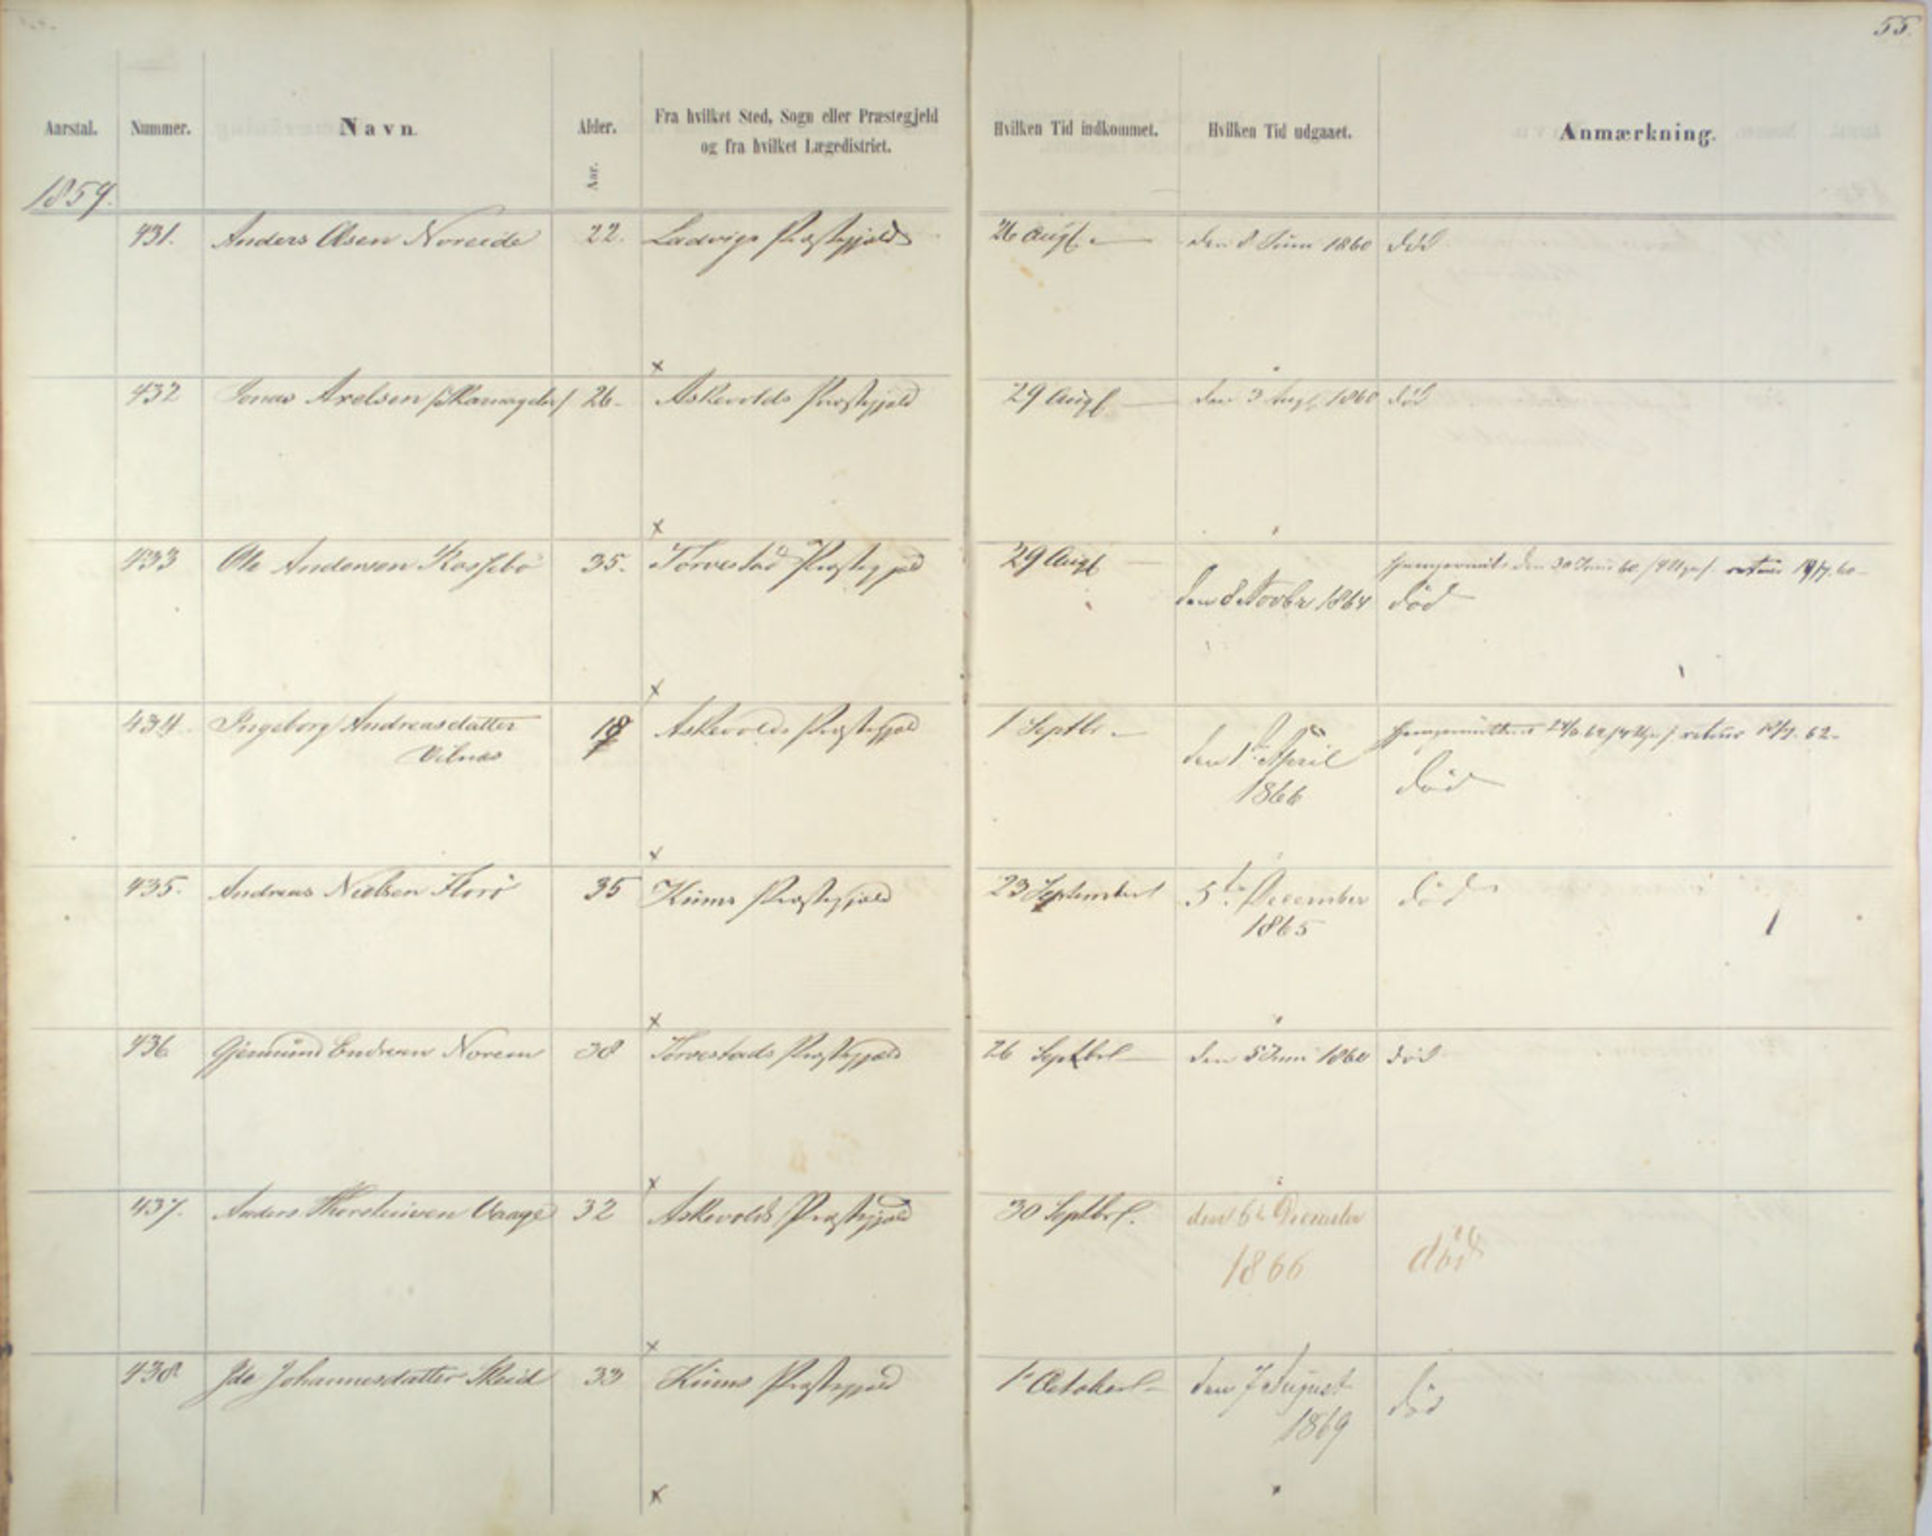 55.
Aarstal. Nummer. Navn. Alder. Fra hvilket Sted, Sogn eller Præstegjeld Hvilken Tid indkommet. Hvilken Tid udgaaet. Anmærkning.
og fra hvilket Lægedistrict.
Aar.
1859.
431. Anders Olsen Noreide 22. Ladvigs Præstegjeld 26 Augt. den 8 Juni 1860 død
432 Jonas Axelsen 26. Askevolds Præstegjeld 29 Augt den 3 Augt 1860 død
433 Ole Andersen Rossebø 35. Torvestad Præstegjeld 29 Augt den 30 Juni 60 retur
den 8 Novbr 1864 død
434. Ingeborg Andreasdatter 18 Askevolds Præstegjeld 1 Septbr. retur 62
Vilnæs den 1ste April død
1866
435. Andreas Nielsen Florø 35 Kinns Præstegjeld 23 September 5te December død
1865
436 Gjermund Endresen Norem 38 Torvestads Præstegjeld 26 Septbr den 5 Juni 1860 død
437. Anders Thorsteinsen Vaage 32 Askevolds Præstegjeld 30 Septbr. den 6te December
1866 död
438 Ide Johannesdatter Skeid 33 Kinns Præstegjeld 1 October den 7 August død
1869